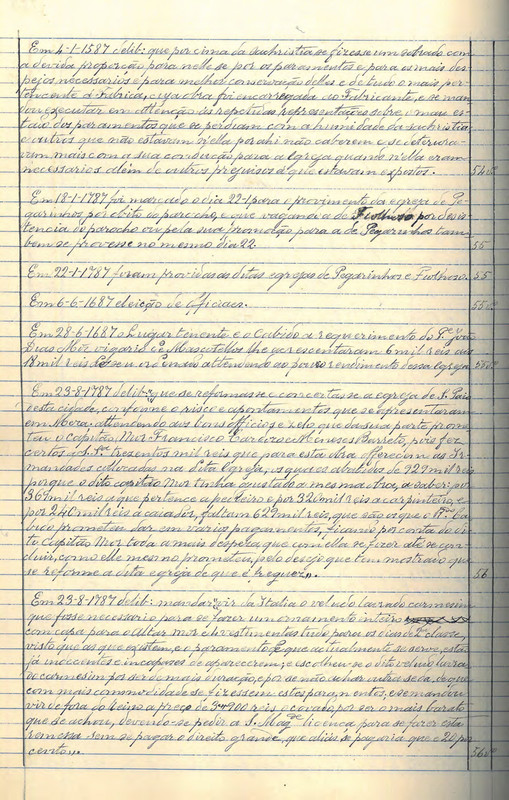 Em 4-1-1587 delib: que por cima da sachristia se fizesse um sobrado com
a devida proporção para nelle se por os paramentos e para os mais des
pejos necessarios e para melhor conservação delles e de tudo o mais per
tencente á Fabrica, cuja obra foi encarregada ao Fabricante, e se man
dou executar em attenção ás repetidas representações sobre o mau es-
tado dos paramentos que se perdiam com a humidade da sachristia
e outros que não estavam n'ella por ahi não caberem e se deteriora-
vam mais com a sua conducção para a Egreja quando n'ella eram
necessarios alem de outros prejuisos a que estavam expostos. 54vº
Em 18-1-1787 foi marcado o dia 22-1 para o provimento da egreja de Pe-
garinhos por obito do parocho, e que vagando a de Fiolhoso por desis
tencia do parocho ou pela sua promoção para a de Pegarinhos tam
bem se provesse no mesmo dia 22. 55
Em 22-1-1787 foram providas as ditas egrejas de Pegarinhos e Fiolhoso. 55
Em 6-6-1687 eleição de officiaes. 55vº
Em 28-6-1687 o Lugar tenente e o Cabido a requerimento do Pe João
Dias Mór vigario de Mascotellos lhe acrescentaram 6 mil reis aos
18 mil reis attendendo ao pouco rendimento dessa Egreja 55vº
Em 23-8-1787 delib: que se reformasse e concertasse a egreja de S. Paio
d'esta cidade, conforme o risco e apontamentos que se apresentaram
em Meza attendendo aos bons officios e zelo que da sua parte prome
teu o capitão Mor Francisco Cardoso Menezes Barreto, pois fez
certos trezentos mil reis que para esta obra offereciam as Ir
mandades collocadas na dita Egreja, os quaes abatidos de 929 mil reis
porque o dito capitão Mor tinha ajustado a mesma obra, a saber: por
369 mil reis a que pertence a pedreiro e por 320 mil reis a carpinteiro, e
por 240 mil reis a caiador, faltam 629 mil reis, que são os que o Rmo Ca
bido prometeu dar em varios pagamentos, ficando por conta do di-
to Capitão Mor toda a mais despeza que com ella se fizer até se con-
cluir, como elle mesmo prometeu, pelo desejo que tem mostrado que
se reforme a dita egreja de que é freguez". 56
Em 23-8-1787 delib: mandar vir da Italia o veludo lavrado carmesim
que fosse necessario para se fazer um ornamento inteiro
com capa para o Altar Mor e vestimentas tudo para os dias de 2ª classe,
visto que as que existem, e o paramento de que actualmente se serve, está
já indecentes e incapazes de apparecerem; e escolheu-se o dito veludo lavra-
do carmesim por ser de mais duração, e por se não achar outra seda de que
com mais commodidade se fizessem estes paramentos, e se mandou
vir de fora do Reino a preço de 3:900 reis o covado, por ser o mais barato
que se achou, devendo-se pedir a S. Magde licença para se fazer esta
remessa sem se pagar o direito grande, que aliás se pagaria que é 20 por
cento". 56vº